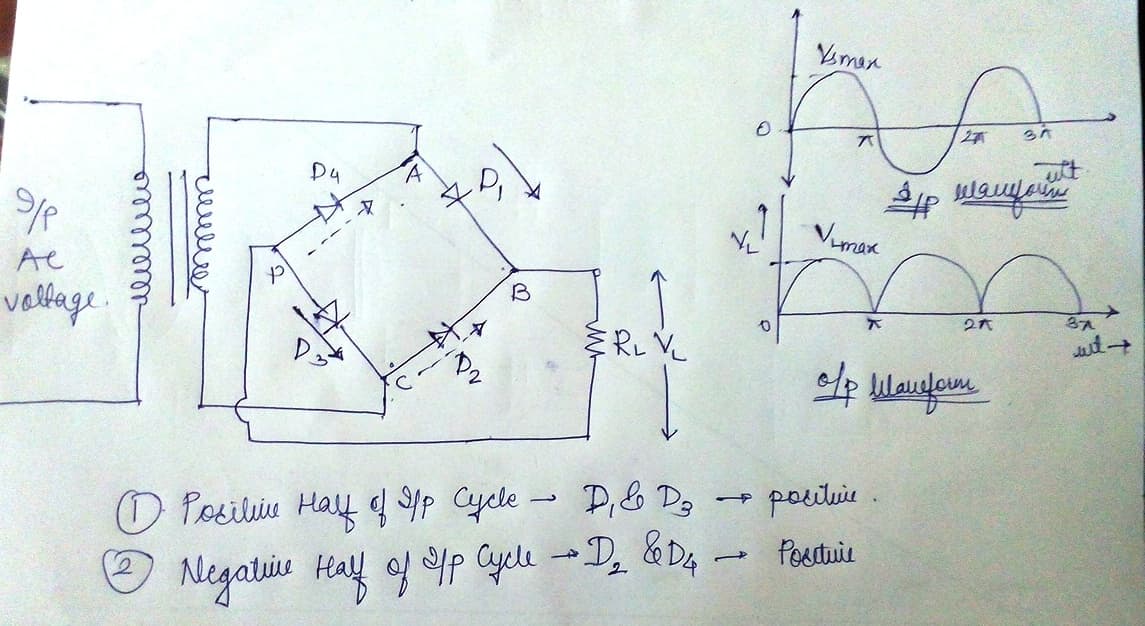 I/P
AC
voltage.
D4
A
D1
P
B
D3
C
D2
RL VL
Vsmax
0
π
2π
3π
wt
I/p waveform
VL
VLmax
0
π
2π
3π
wt →
o/p Waveform
① Positive Half of I/p Cycle → D1 & D3 → positive.
② Negative Half of I/p Cycle → D2 & D4 → Positive